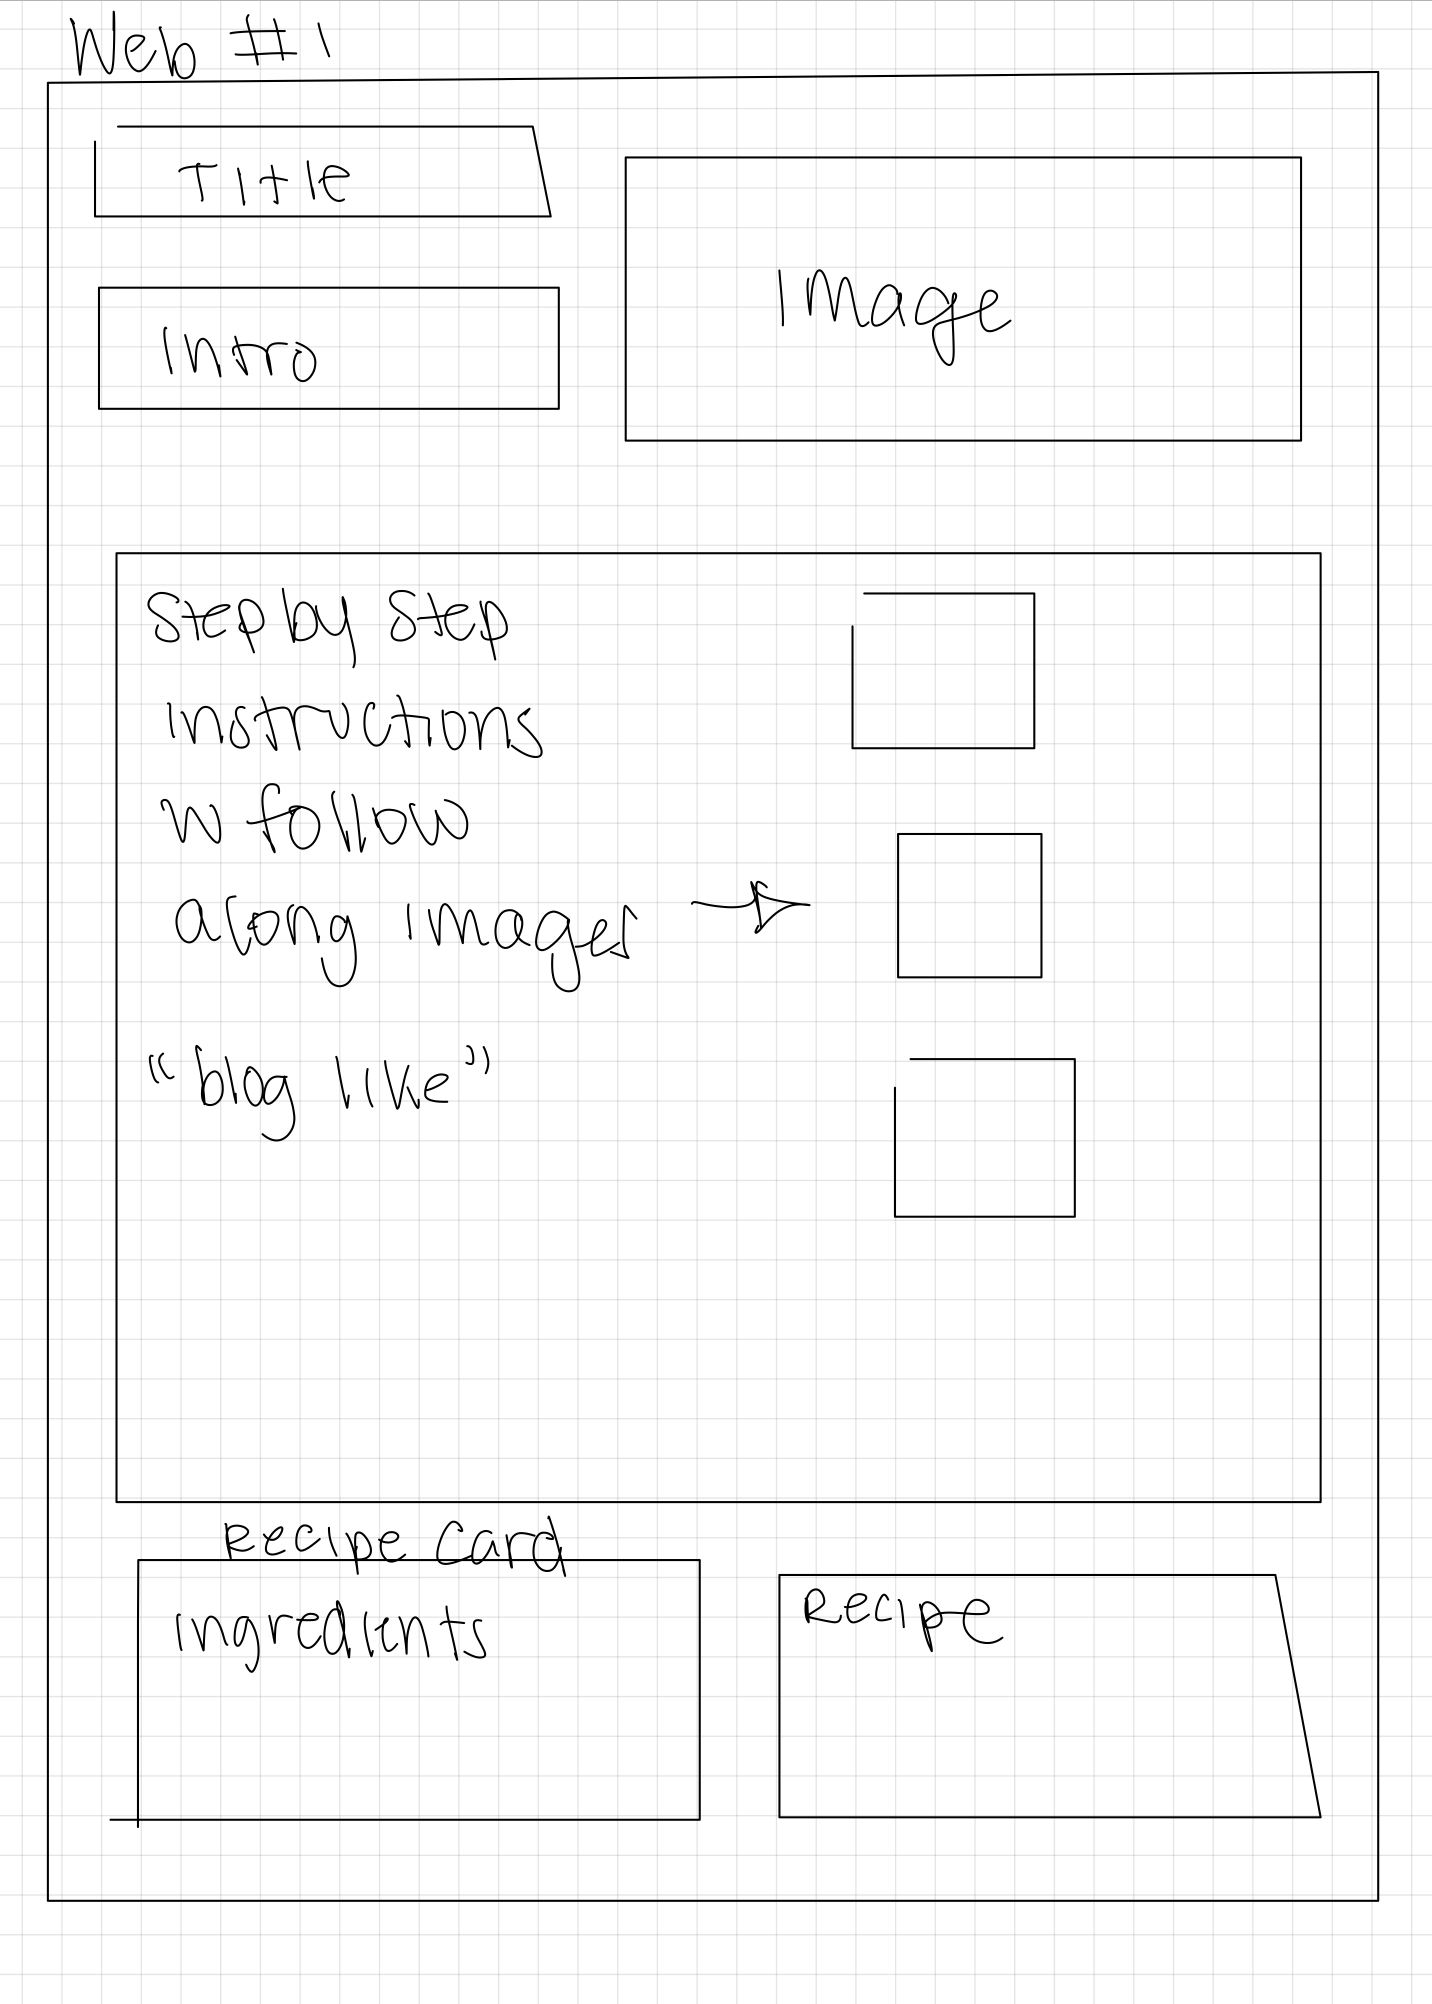 Web #1
Title
Image
Intro
Step by Step
instructions
w follow
along images
"blog like"
Recipe Card
ingredients
Recipe